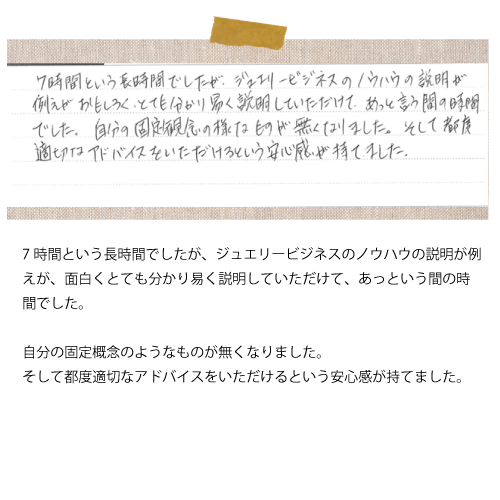 7時間という長時間でしたが、ジュエリービジネスのノウハウの説明が
例えがおもしろく、とても分かり易く説明していただけて、あっと言う間の時間
でした。自分の固定観念の様なものが無くなりました。そして都度
適切なアドバイスをいただけるという安心感が持てました。
7 時間という長時間でしたが、ジュエリービジネスのノウハウの説明が例
えが、面白くとても分かり易く説明していただけて、あっという間の時
間でした。
自分の固定概念のようなものが無くなりました。
そして都度適切なアドバイスをいただけるという安心感が持てました。